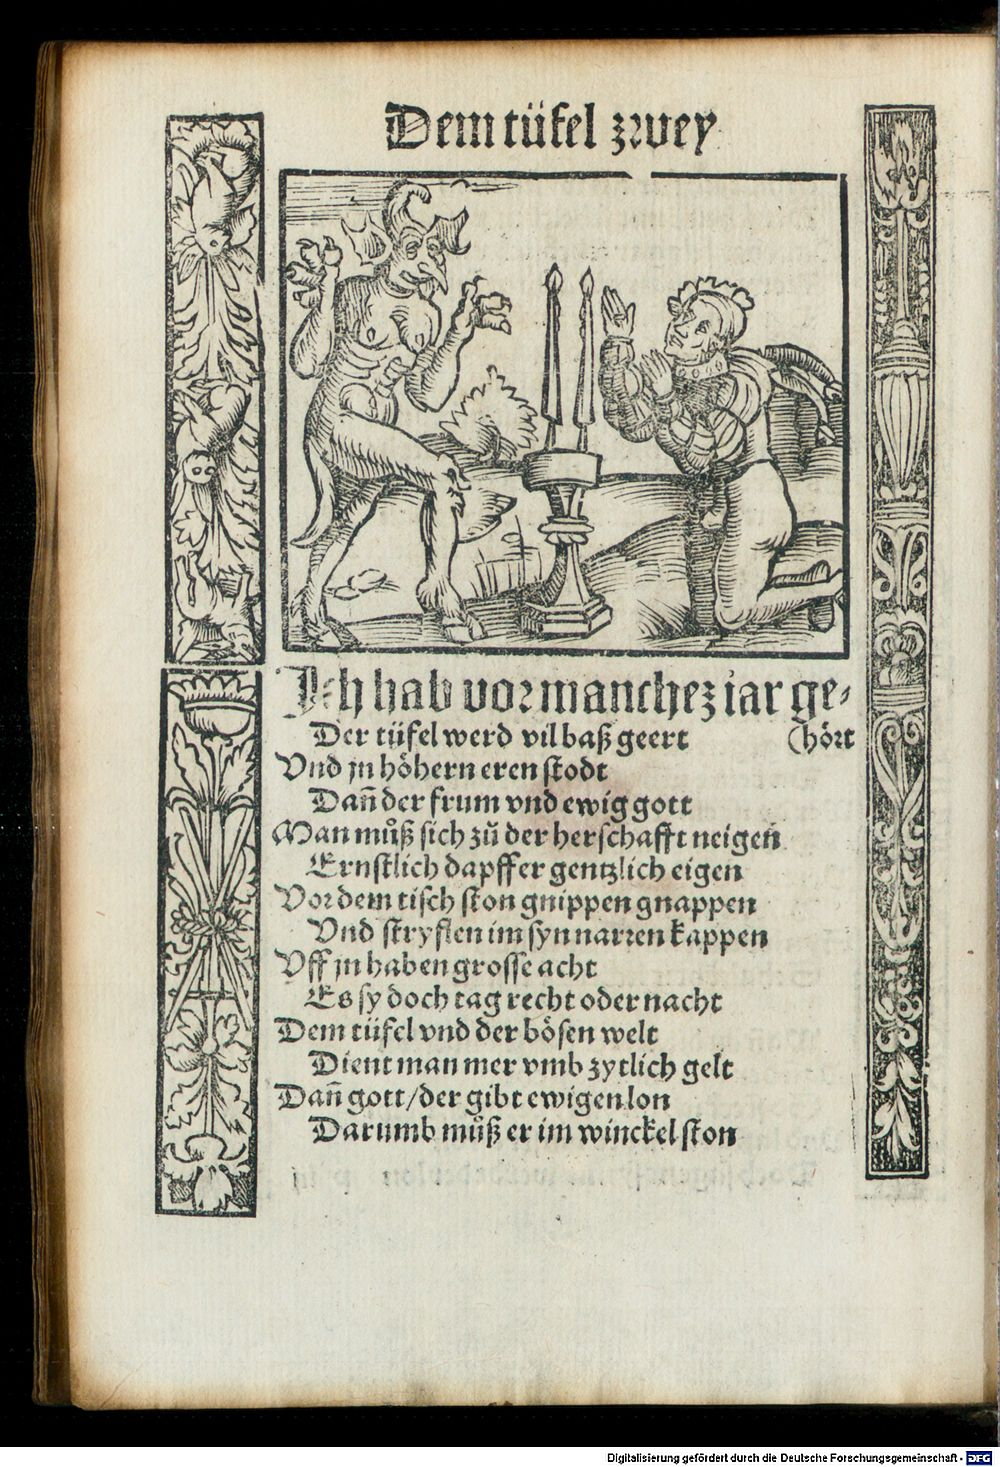 Dem tüfel zwey
Ich hab vor manchez iar ge-
Der tüfel werd vil baß geert (hört
Vnd jn höhern eren stodt
Dañ der frum vnd ewig gott
Man můß sich zů der herschafft neigen
Ernstlich dapffer gentzlich eigen
Vor dem tisch ston gnippen gnappen
Vnd stryflen im syn narren kappen
Vff jn haben grosse acht
Es sy doch tag recht oder nacht
Dem tüfel vnd der bösen welt
Dient man mer vmb zytlich gelt
Dañ gott/der gibt ewigen lon
Darumb můß er im winckel ston
Digitalisierung gefördert durch die Deutsche Forschungsgemeinschaft - DFG